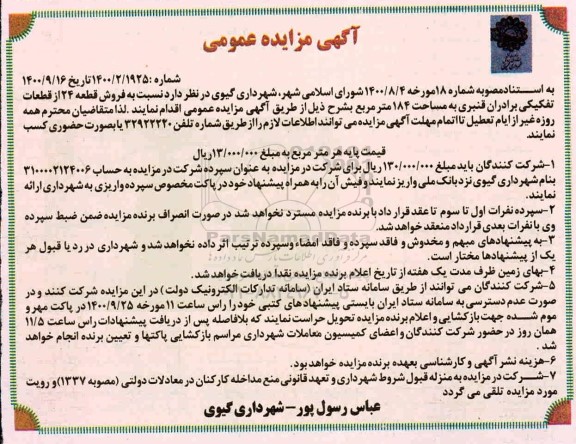 آگهی مزایده عمومی
شماره :۱۴۰۰/۲/۱۹۲۵تاریخ ۱۴۰۰/۹/۱۶
به استنادمصوبه شماره ۱۸مورخه ۱۴۰۰/۸/۴شورای اسلامی شهر، شهرداری گیوی در نظر دارد نسبت به فروش قطعه ۲۴از قطعات
تفکیکی برادران قنبری به مساحت ۱۸۴متر مربع بشرح ذیل از طریق آگهی مزایده عمومی اقدام نمایند .لذا متقاضیان محترم همه
روزه غیر از ایام تعطیل تا اتمام مهلت آگهی مزایده می توانند اطلاعات لازم را از طریق شماره تلفن ۳۲۹۲۲۲۲۰ یا بصورت حضوری کسب
نمایند.
قیمت پایه هر متر مربع به مبلغ ۱۳/۰۰۰/۰۰۰ریال
۱-شرکت کنندگان باید مبلغ ۱۳۰/۰۰۰/۰۰۰ ریال برای شرکت در مزایده به عنوان سپرده شرکت در مزایده به حساب ۳۱۰۰۰۰۲۱۲۴۰۰۶
بنام شهرداری گیوی نزد بانک ملی واریز نمایند و فیش آن را به همراه پیشنهاد خود در پاکت مخصوص سپرده واریزی به شهرداری ارائه
نمایند.
۲-سپرده نفرات اول تا سوم تا عقد قرار داد با برنده مزایده مسترد نخواهد شد در صورت انصراف برنده مزایده ضمن ضبط سپرده
وی با نفرات بعدی قرارداد منعقد خواهد شد.
۳-به پیشنهادهای مبهم و مخدوش و فاقد سپرده و فاقد امضاء وسپرده ترتیب اثر داده نخواهد شد و شهرداری در رد یا قبول هر
یک از پیشنهادها مختار است.
۴-بهای زمین ظرف مدت یک هفته از تاریخ اعلام برنده مزایده نقدا دریافت خواهد شد.
۵-شرکت کنندگان می توانند از طریق سامانه ستاد ایران (سامانه تدارکات الکترونیک دولت ) در این مزایده شرکت کنند و در
صورت عدم دسترسی به سامانه ستاد ایران بایستی پیشنهادهای کتبی خود را راس ساعت ۱۱مورخه ۱۴۰۰/۹/۲۵در پاکت مهر و
موم شده جهت بازگشایی و اعلام برنده مزایده تحویل حراست نمایند که بلافاصله پس از دریافت پیشنهادات راس ساعت ۱۱/۵
همان روز در حضور شرکت کنندگان و اعضای کمیسیون معاملات شهرداری مراسم بازگشایی پاکتها و تعیین برنده انجام خواهد
شد .
۶-هزینه نشر آگهی و کارشناسی بعهده برنده مزایده خواهد بود.
۷-شرکت در مزایده به منزله قبول شروط شهرداری و تعهد قانونی منع مداخله کارکنان در معادلات دولتی (مصوبه ۱۳۳۷) و رویت
مورد مزایده تلقی می گردد
عباس رسول پور-شهرداری گیوی
ParsNamadData